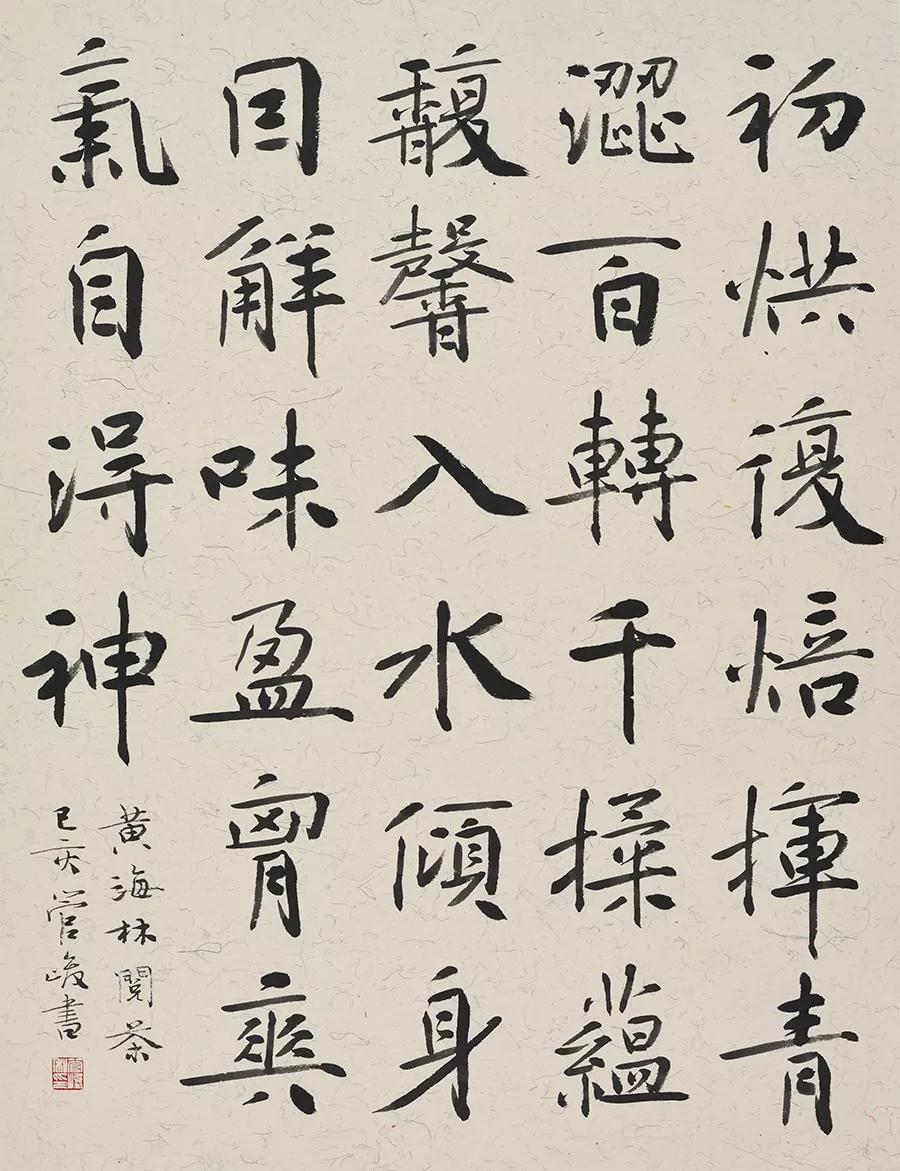 初烘復焙揮青
澀百轉千揉蘊
馥馨入水傾身
囙解味盈胷爽
氣自得神
黄海林閱茶
己亥管峻書